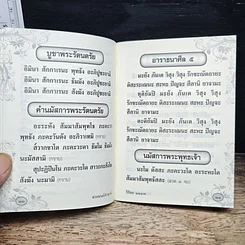 บูชาพระรัตนตรัย
อิมินา สักกาเรนะ พุทธัง อะภิปูชะยามิ
อิมินา สักกาเรนะ ธัมมัง อะภิปูชะยามิ
อิมินา สักกาเรนะ สังฆัง อะภิปูชะยามิ
คำนมัสการพระรัตนตรัย
อะระหัง สัมมาสัมพุทโธ ภะคะวา
พุทธัง ภะคะวันตัง อะภิวาเทมิ (กราบ)
สวากขาโต ภะคะวะตา ธัมโม ธัมมัง
นะมัสสามิ (กราบ)
สุปะฏิปันโน ภะคะวะโต สาวะกะสังโฆ
สังฆัง นะมามิ (กราบ)
อาราธนาศีล ๕
มะยัง ภันเต วิสุง วิสุง
รักขะณัตถายะ
ติสะระเณนะ สะหะ ปัญจะ
สีลานิ ยาจามะ
ทุติยัมปิ มะยัง ภันเต วิสุง วิสุง
รักขะณัตถายะ ติสะระเณนะ สะหะ ปัญจะ
สีลานิ ยาจามะ
ตะติยัมปิ มะยัง ภันเต วิสุง
วิสุง รักขะณัตถายะ ติสะระเณนะ สะหะ
ปัญจะ สีลานิ ยาจามะ
นมัสการพระพุทธเจ้า
นะโม ตัสสะ ภะคะวะโต อะระหะโต
สัมมาสัมพุทธัสสะ